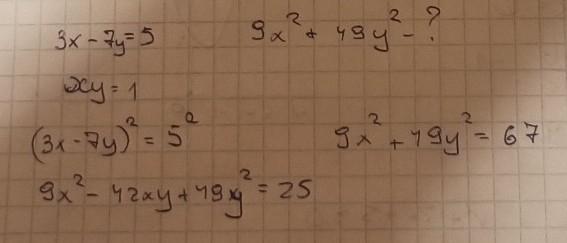 3x - 7y = 5
9x² + 49y² - ?
xy = 1
(3x - 7y)² = 5²
9x² + 49y² = 67
9x² - 42xy + 49y² = 25